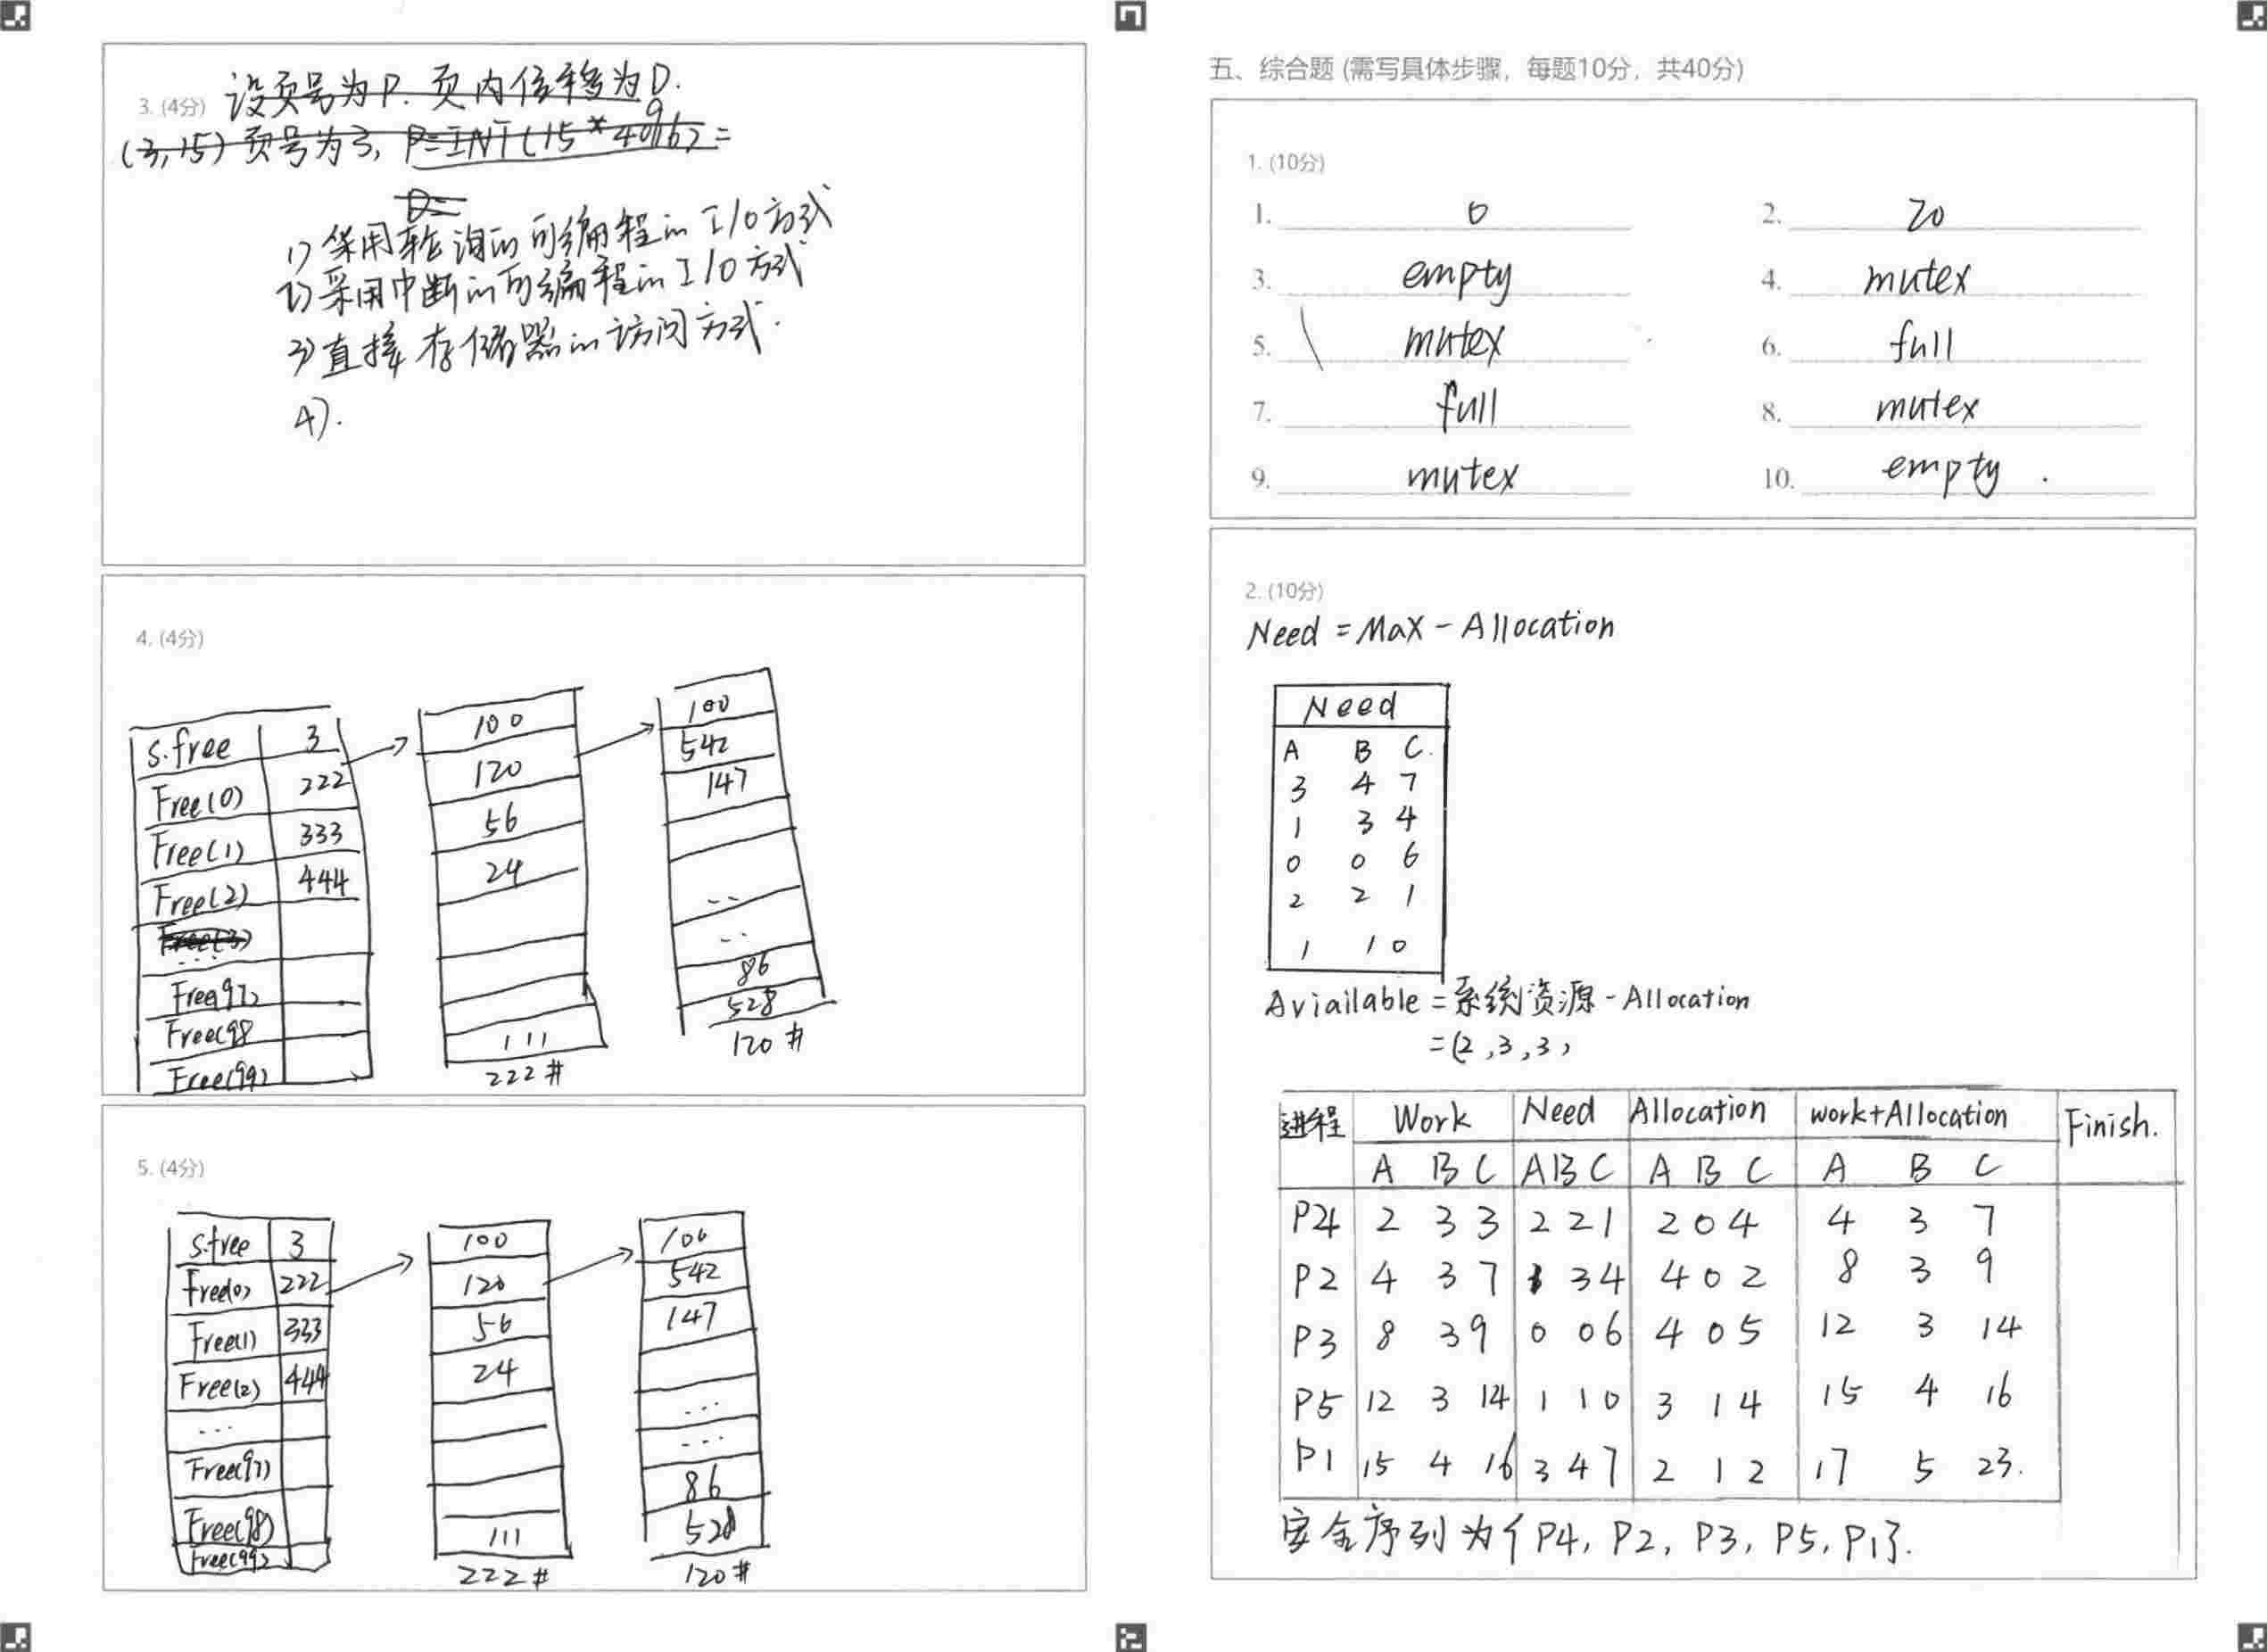 3. (4分)
设页号为P. 页内位移为D.
(3,15) 页号为3, P=INT(15*4096)=
D=
1) 采用轮询的可编程的I/O方式
2) 采用中断的可编程的I/O方式
3) 直接存储器的访问方式.
4).
4. (4分)
s.free 3
Free(0) 222
Free(1) 333
Free(2) 444
Free(3)
...
Free(97)
Free(98
Free(99)
100
120
56
24
111
222#
100
542
147
..
..
86
528
120#
5. (4分)
s.free 3
Free(0) 222
Free(1) 333
Free(2) 444
...
Free(97)
Free(98)
Free(99)
100
120
56
24
111
222#
100
542
147
...
...
86
528
120#
五、综合题 (需写具体步骤，每题10分，共40分)
1. (10分)
1. 0 2. 20
3. empty 4. mutex
5. mutex 6. full
7. full 8. mutex
9. mutex 10. empty .
2. (10分)
Need = Max - Allocation
Need
A B C.
3 4 7
1 3 4
0 0 6
2 2 1
1 1 0
Aviailable = 系统资源 - Allocation
= (2,3,3)
进程 Work Need Allocation work+Allocation Finish.
A B C A B C A B C A B C
P4 2 3 3 2 2 1 2 0 4 4 3 7
P2 4 3 7 1 3 4 4 0 2 8 3 9
P3 8 3 9 0 0 6 4 0 5 12 3 14
P5 12 3 14 1 1 0 3 1 4 15 4 16
P1 15 4 16 3 4 7 2 1 2 17 5 23.
安全序列为{P4, P2, P3, P5, P1}.